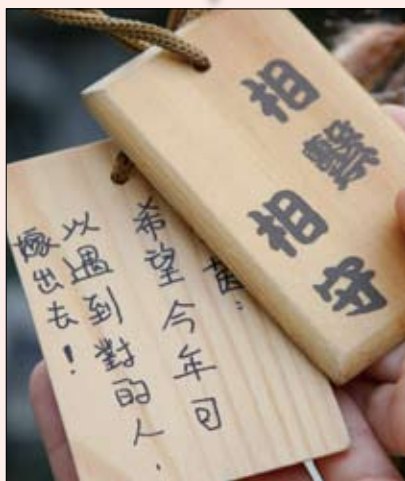 相繫相守
茵：
希望今年可
以遇到對的人，
嫁出去！